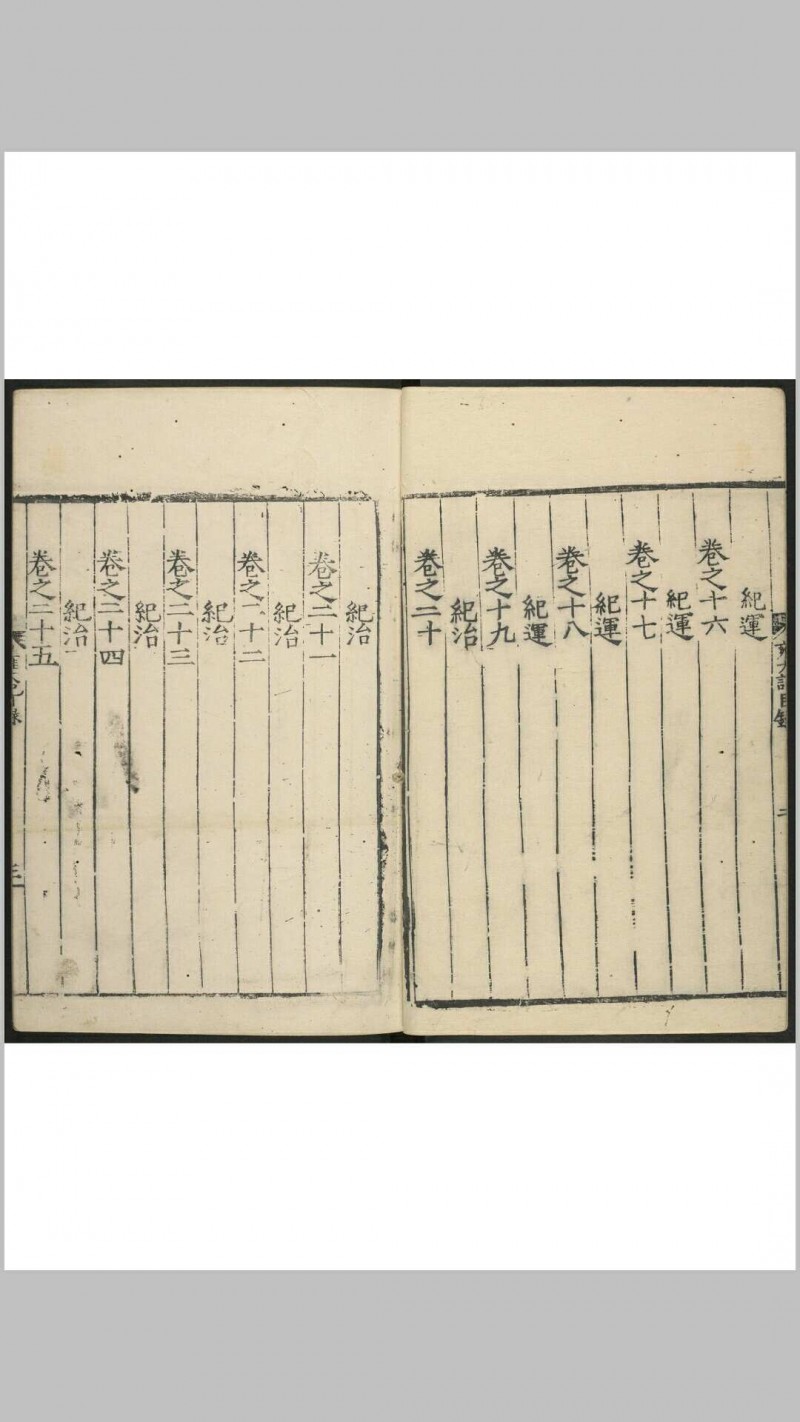 紀運
卷之十六
紀運
卷之十七
紀運
卷之十八
紀運
卷之十九
紀治
卷之二十
紀治
卷之二十一
紀治
卷之二十二
紀治
卷之二十三
紀治
卷之二十四
紀治
卷之二十五
三